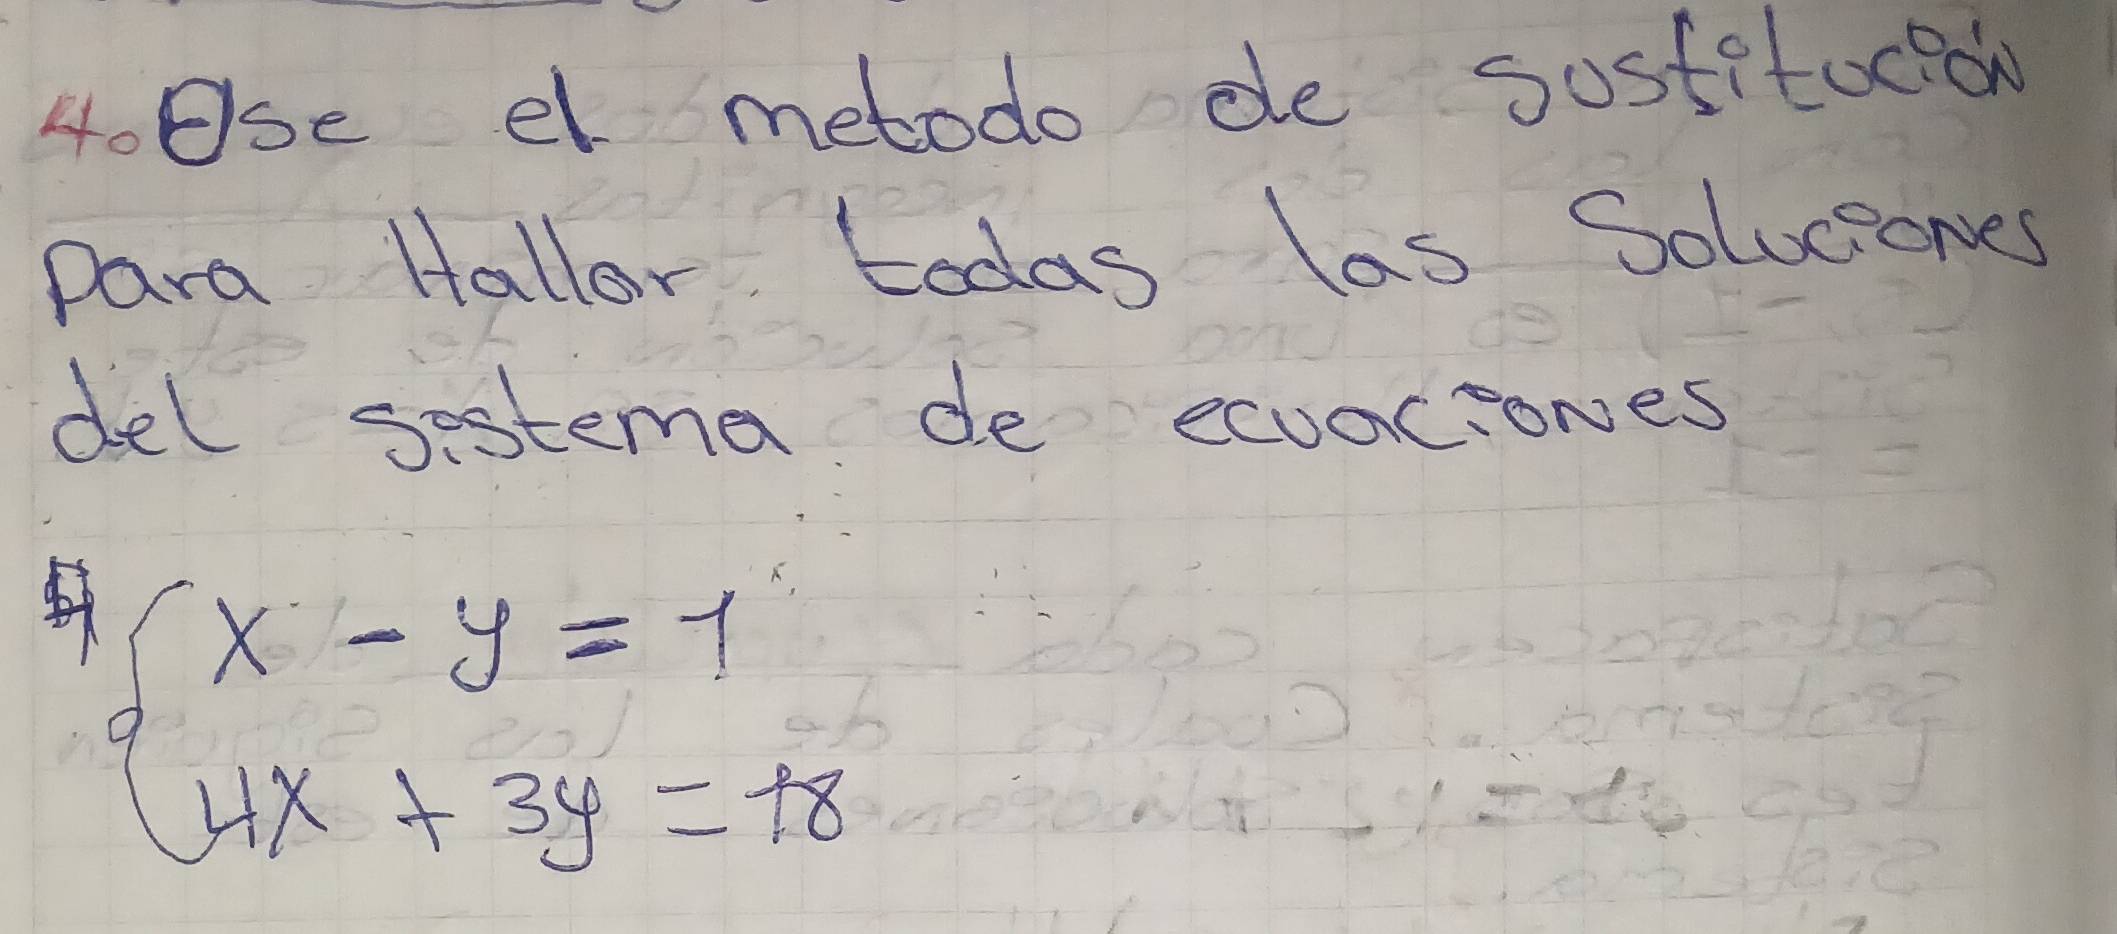 4. Use el metodo de sustitución
para Hallar todas las Soluciones
del sistema de ecuaciones
x - y = 1
4x + 3y = 18